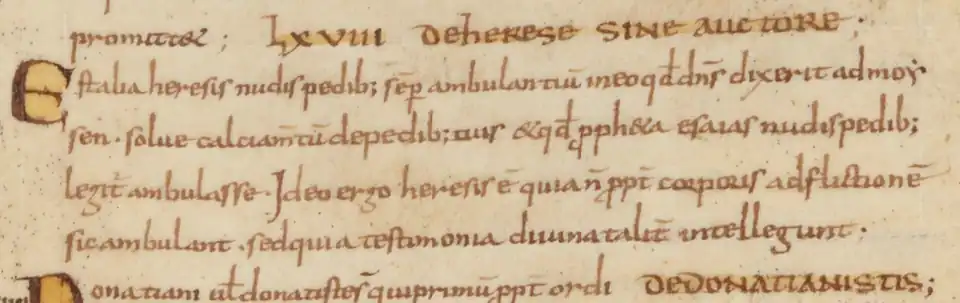 promittet; LXVIII DE HERESE SINE AUCTORE;
Est alia heresis nudis pedib; sēp ambulantiū in eo qđ dn̄s dixerit ad moy
sen. solue calciam̄tū de pedib; tuis & qđ pph&a esaias nudis pedib;
legit̄ ambulasse. Ideo ergo heresis ē quia n̄ ppt̄ corporis adflictionē
sic ambulant. sed quia testimonia diuina talit̄ intellegunt.
Donatiani ūl donatistę q̄ primū ppt̄ ordi DE DONATIANISTIS;